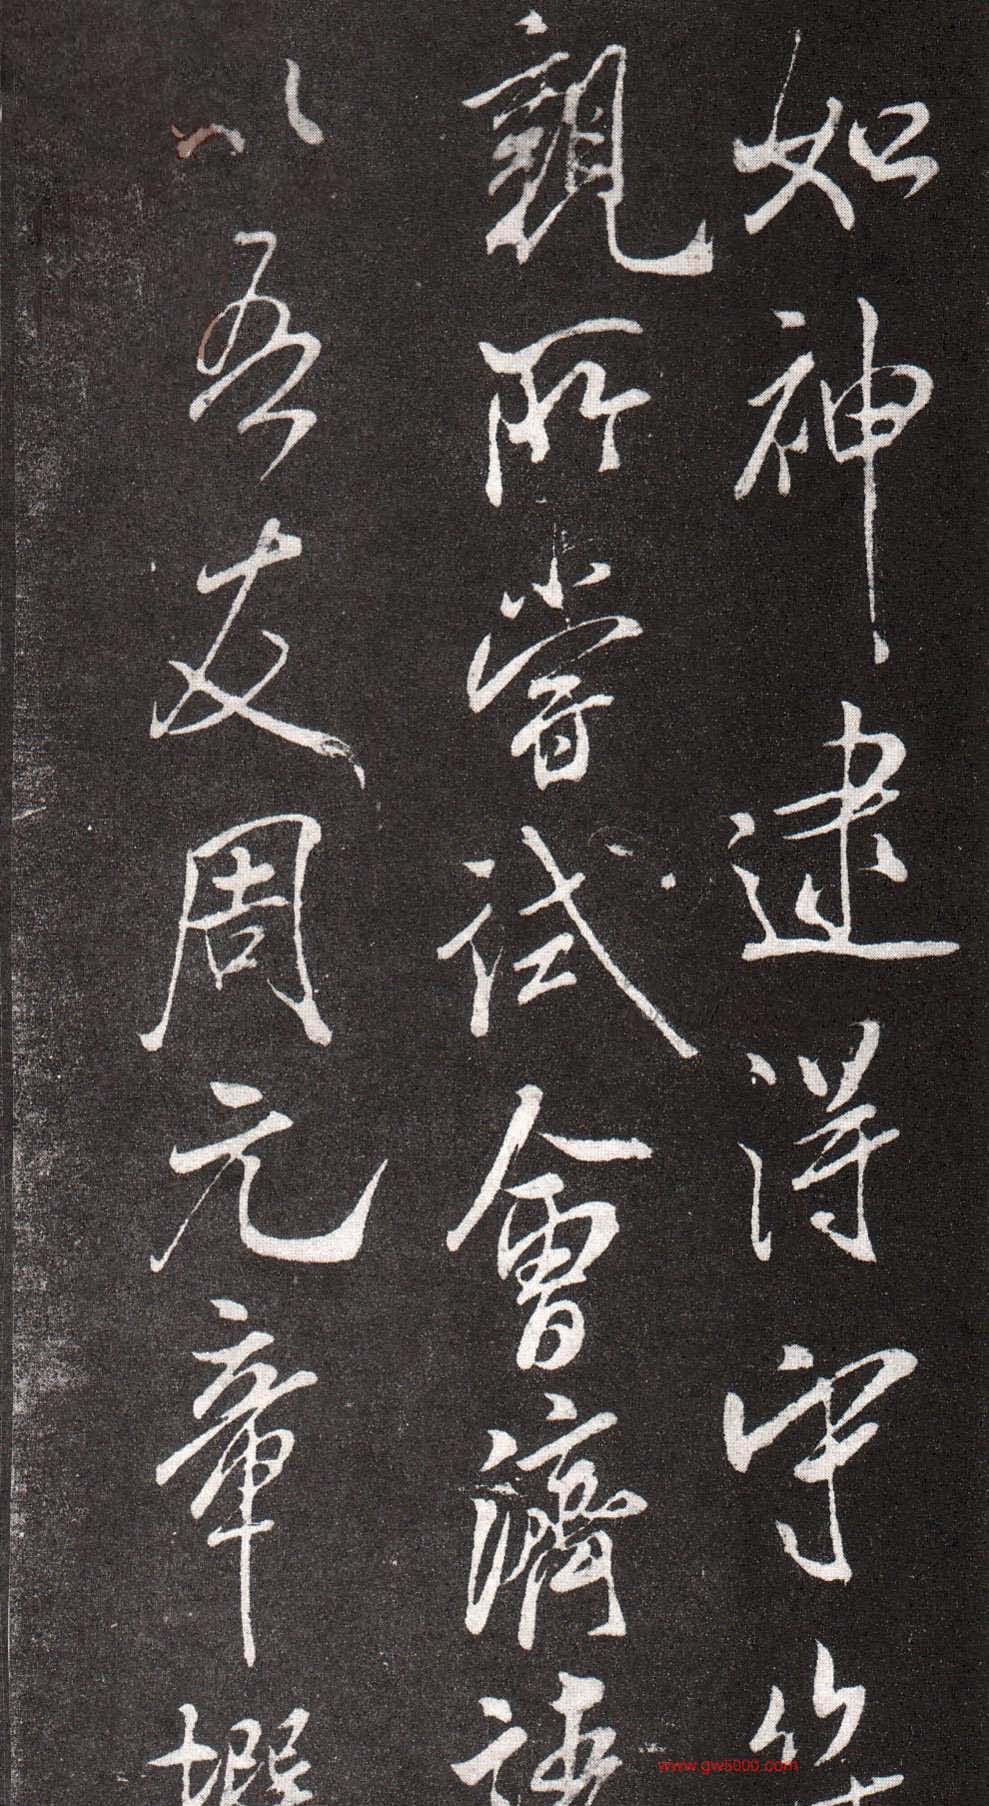 如神逮得守
親所嘗試會濟
以吾友周元章撰
www.gw5000.com